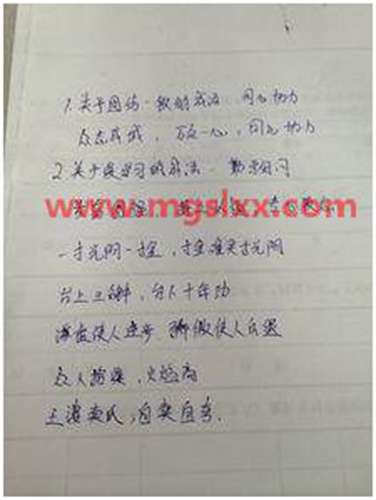 1.关于团结一致的成语 同心协力
众志成城, 万众一心, 同心协力
2.关于爱学习的成语 勤学好问
www.mgslxx.com
一寸光阴一寸金, 寸金难买寸光阴
台上三分钟, 台下十年功
谦虚使人进步 骄傲使人落后
众人拾柴, 火焰高
王婆卖瓜, 自卖自夸.